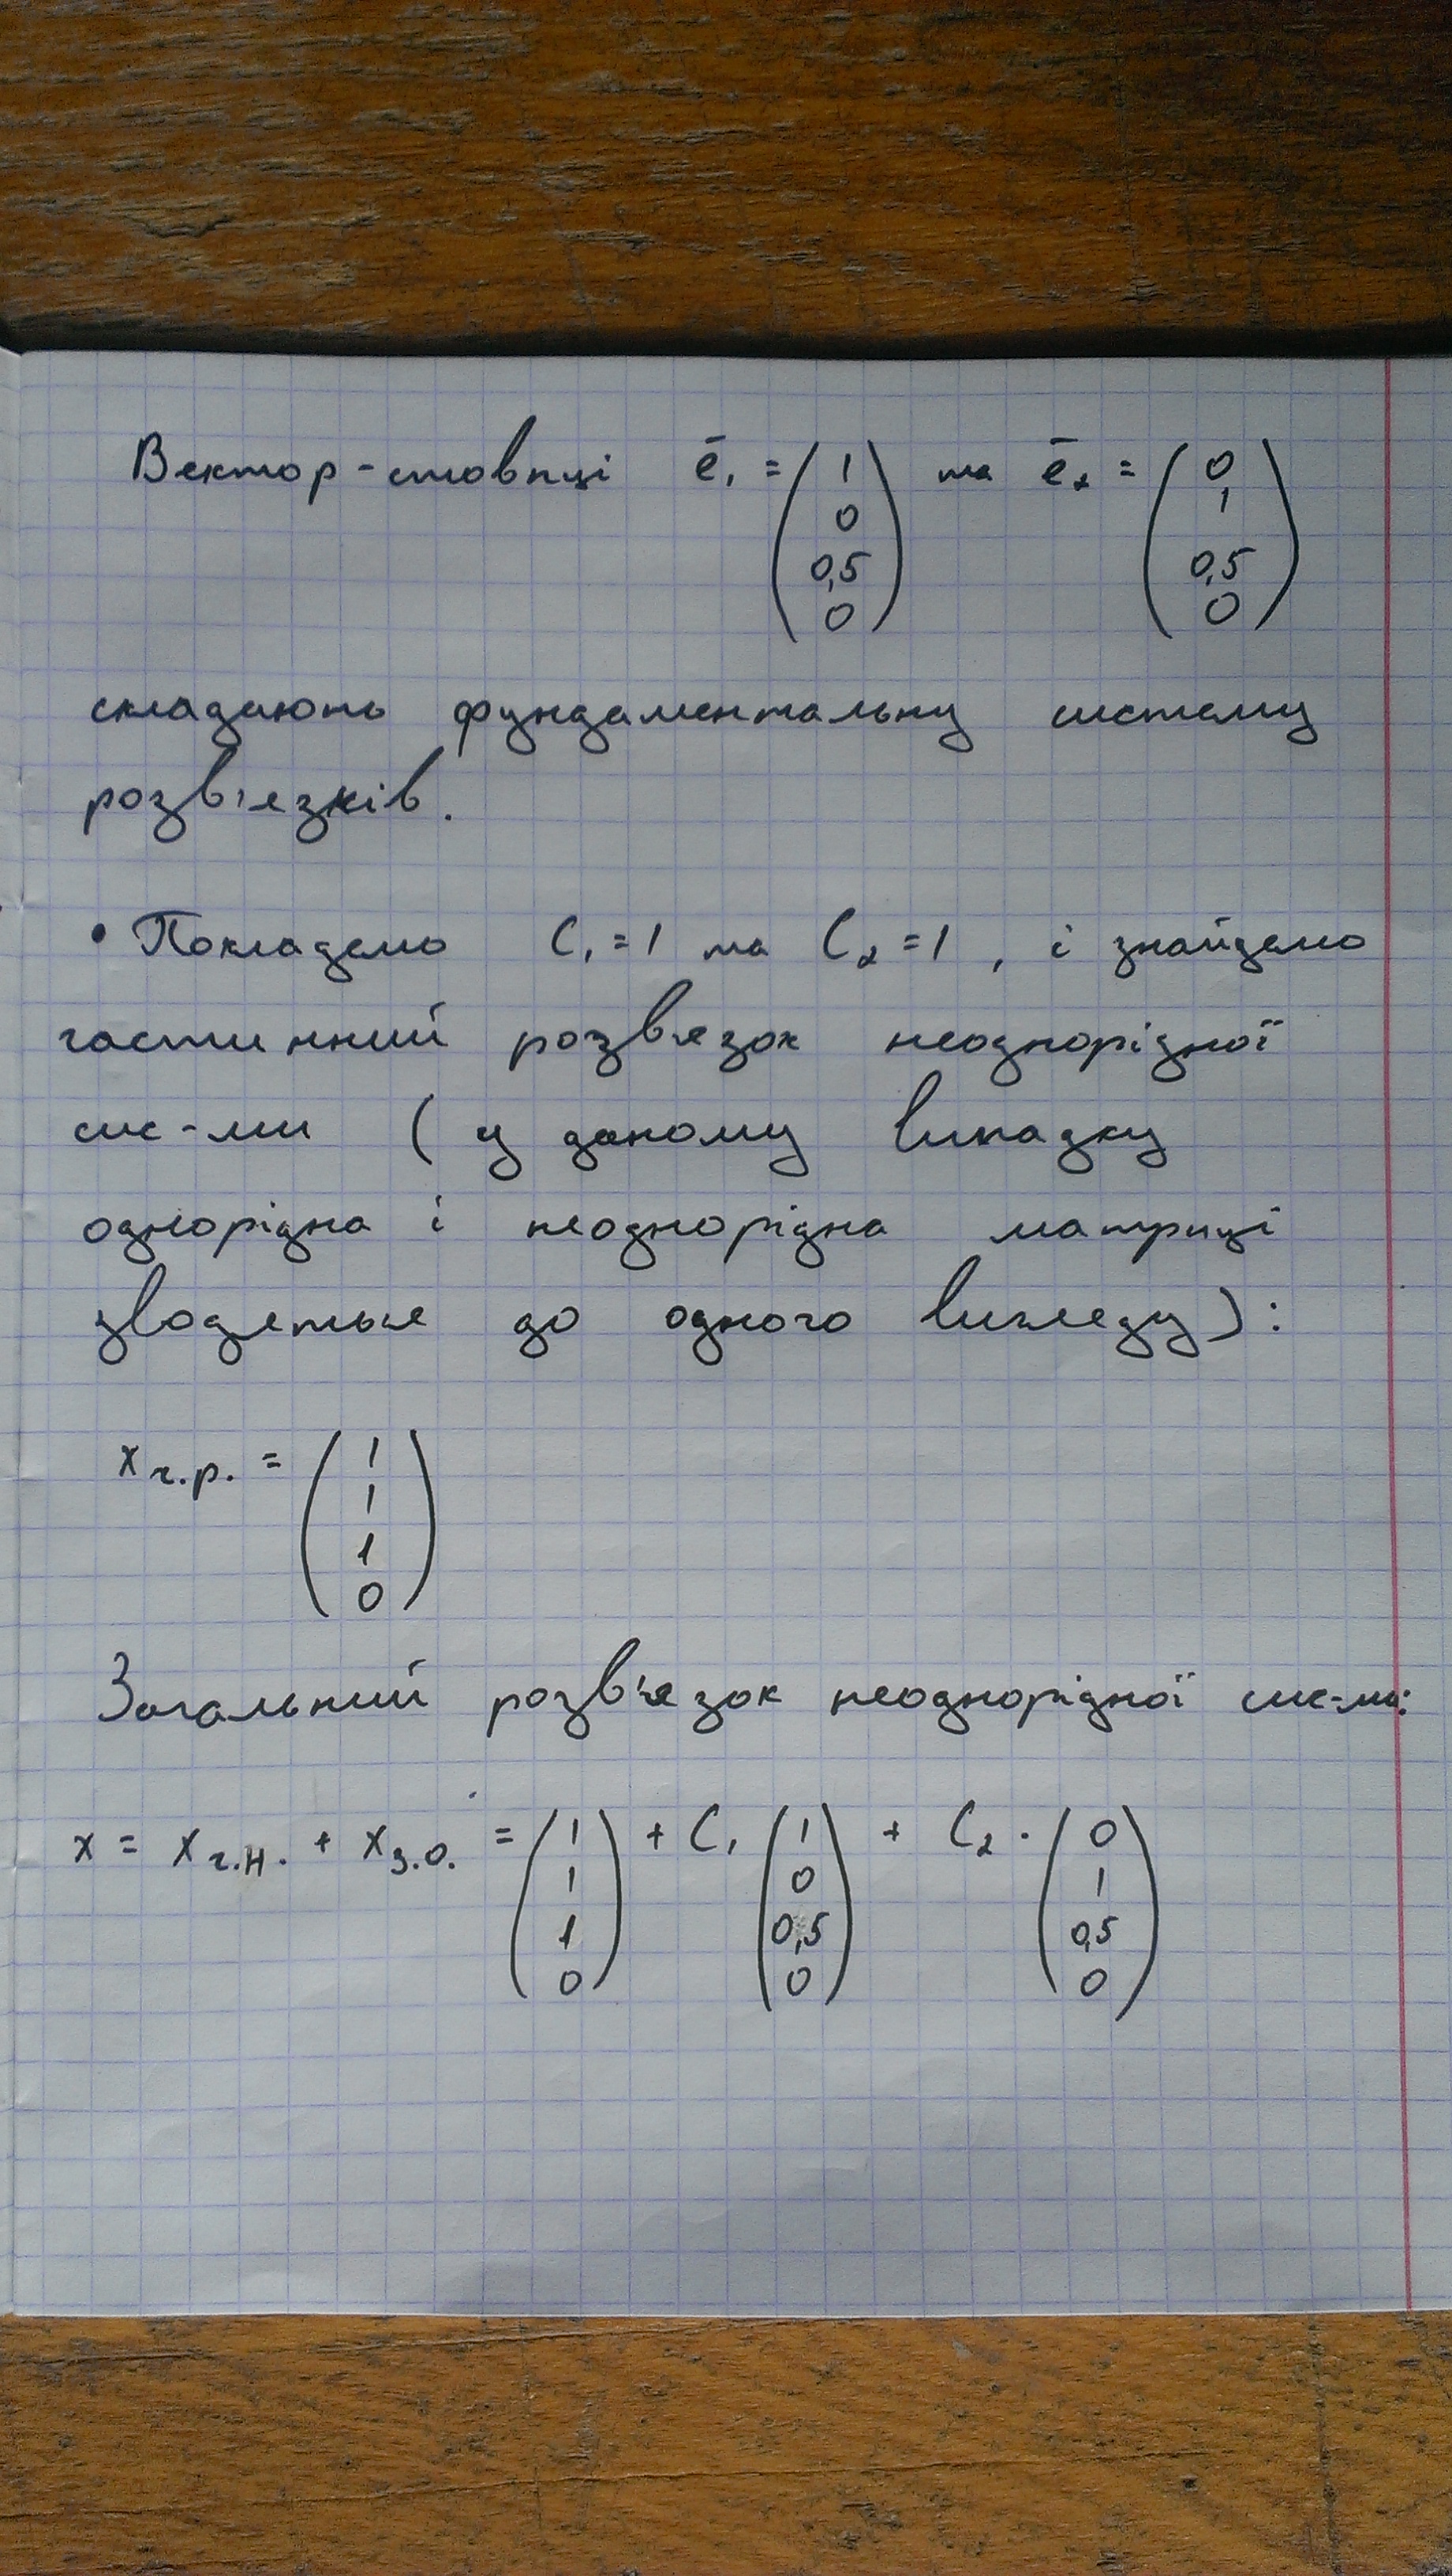 Вектор-стовпці ē₁ = (1 0 0,5 0) та ē₂ = (0 1 0,5 0)
складають фундаментальну систему
розв'язків.
• Покладемо C₁ = 1 та C₂ = 1, і знайдемо
частинний розв'язок неоднорідної
сис-ми (у даному випадку
однорідна і неоднорідна матриці
зводяться до одного вигляду):
x ч.р. = (1 1 1 0)
Загальний розв'язок неоднорідної сис-ми:
x = x ч.н. + x з.о. = (1 1 1 0) + C₁ (1 0 0,5 0) + C₂ · (0 1 0,5 0)